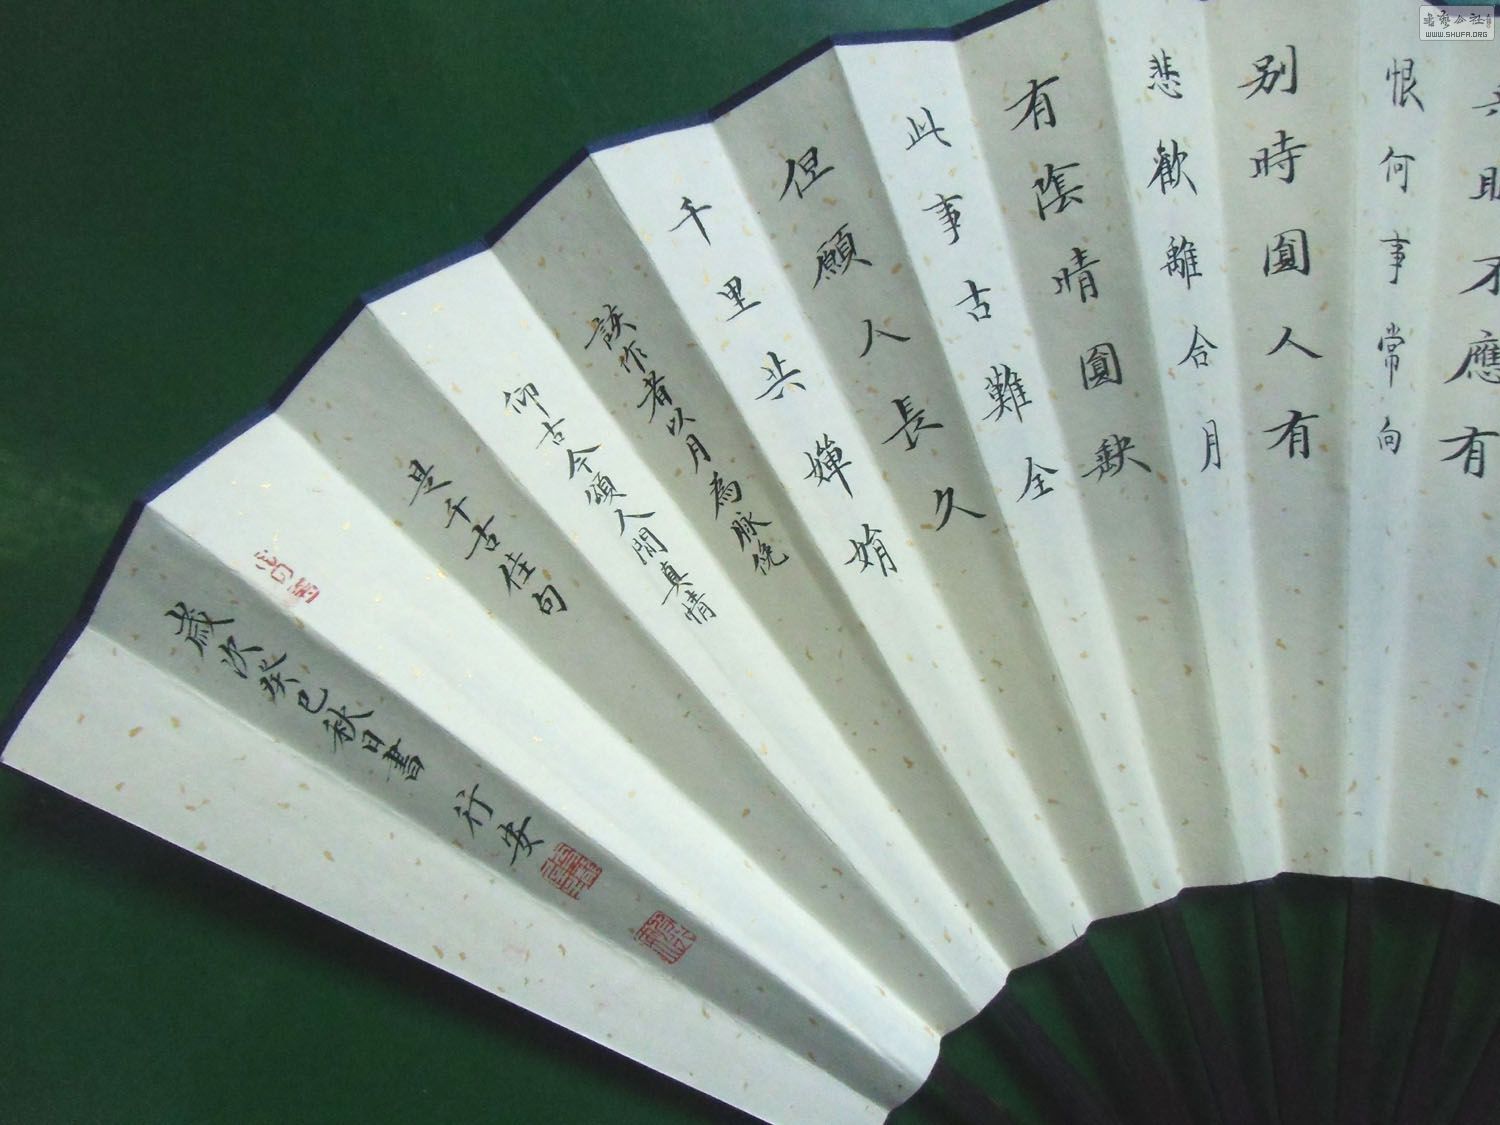 不應有
恨何事常向
别時圓人有
悲歡離合月
有陰晴圓缺
此事古難全
但願人長久
千里共嬋娟
該作者以月為脉絡
仰古今頌人間真情
是千古佳句
歲次癸巳秋日書 行安
書藝公社
WWW.SHUFA.ORG